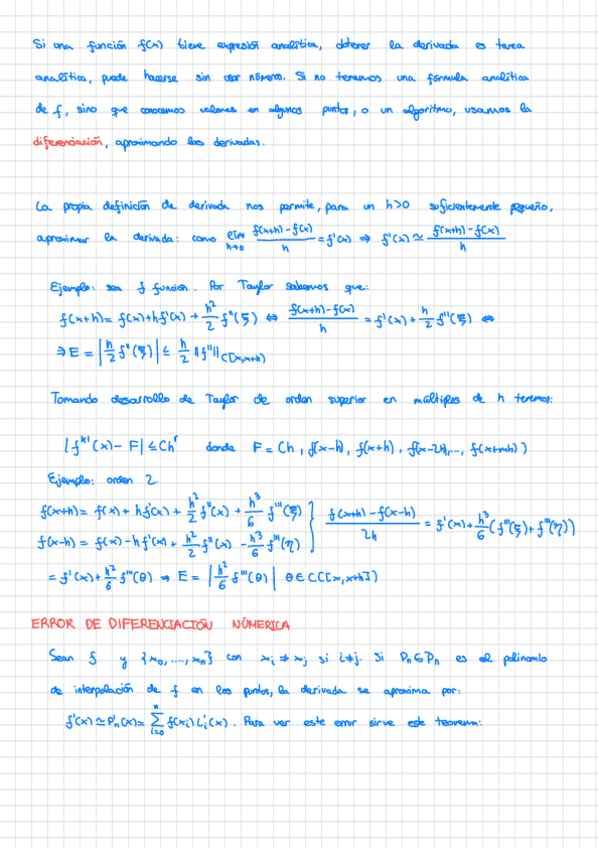 Si una función f(x) tiene expresión analítica, obtener la derivada es tarea
analítica, puede hacerse sin usar números. Si no tenemos una fórmula analítica
de f, sino que conocemos valores en algunos puntos, o un algoritmo, usamos la
diferenciación, aproximando las derivadas.
La propia definición de derivada nos permite, para un h>0 suficientemente pequeño,
aproximar la derivada: como lim_{h→0} (f(x+h)-f(x))/h = f'(x) ⇒ f'(x) ≃ (f(x+h)-f(x))/h
Ejemplo: sea f función. Por Taylor sabemos que:
f(x+h) = f(x)+hf'(x) + h²/2 f''(ξ) ⇔ (f(x+h)-f(x))/h = f'(x) + h/2 f''(ξ) ⇔
⇒ E = |h/2 f''(ξ)| ≤ h/2 ||f''||_{C[x,x+h]}
Tomando desarrollo de Taylor de orden superior en múltiplos de h tenemos:
|f^{(k)}(x) - F| ≤ Ch^r donde F = (h, f(x-h), f(x+h), f(x-2h), ..., f(x+mh))
Ejemplo: orden 2
f(x+h) = f(x) + hf'(x) + h²/2 f''(x) + h³/6 f'''(ξ) } (f(x+h)-f(x-h))/2h = f'(x) + h³/6 (f'''(ξ) + f'''(η))
f(x-h) = f(x) - hf'(x) + h²/2 f''(x) - h³/6 f'''(η)
= f'(x) + h²/6 f'''(θ) ⇒ E = |h²/6 f'''(θ)| θ ∈ C([x, x+h])
ERROR DE DIFERENCIACIÓN NÚMERICA
Sean f y {x₀, ..., xₙ} con xᵢ ≠ xⱼ si i≠j. Si Pₙ ∈ ℙₙ es el polinomio
de interpolación de f en los puntos, la derivada se aproxima por:
f'(x) ≃ P'ₙ(x) = Σ_{i=0}^{n} f(xᵢ) L'ᵢ(x). Para ver este error sirve este teorema: